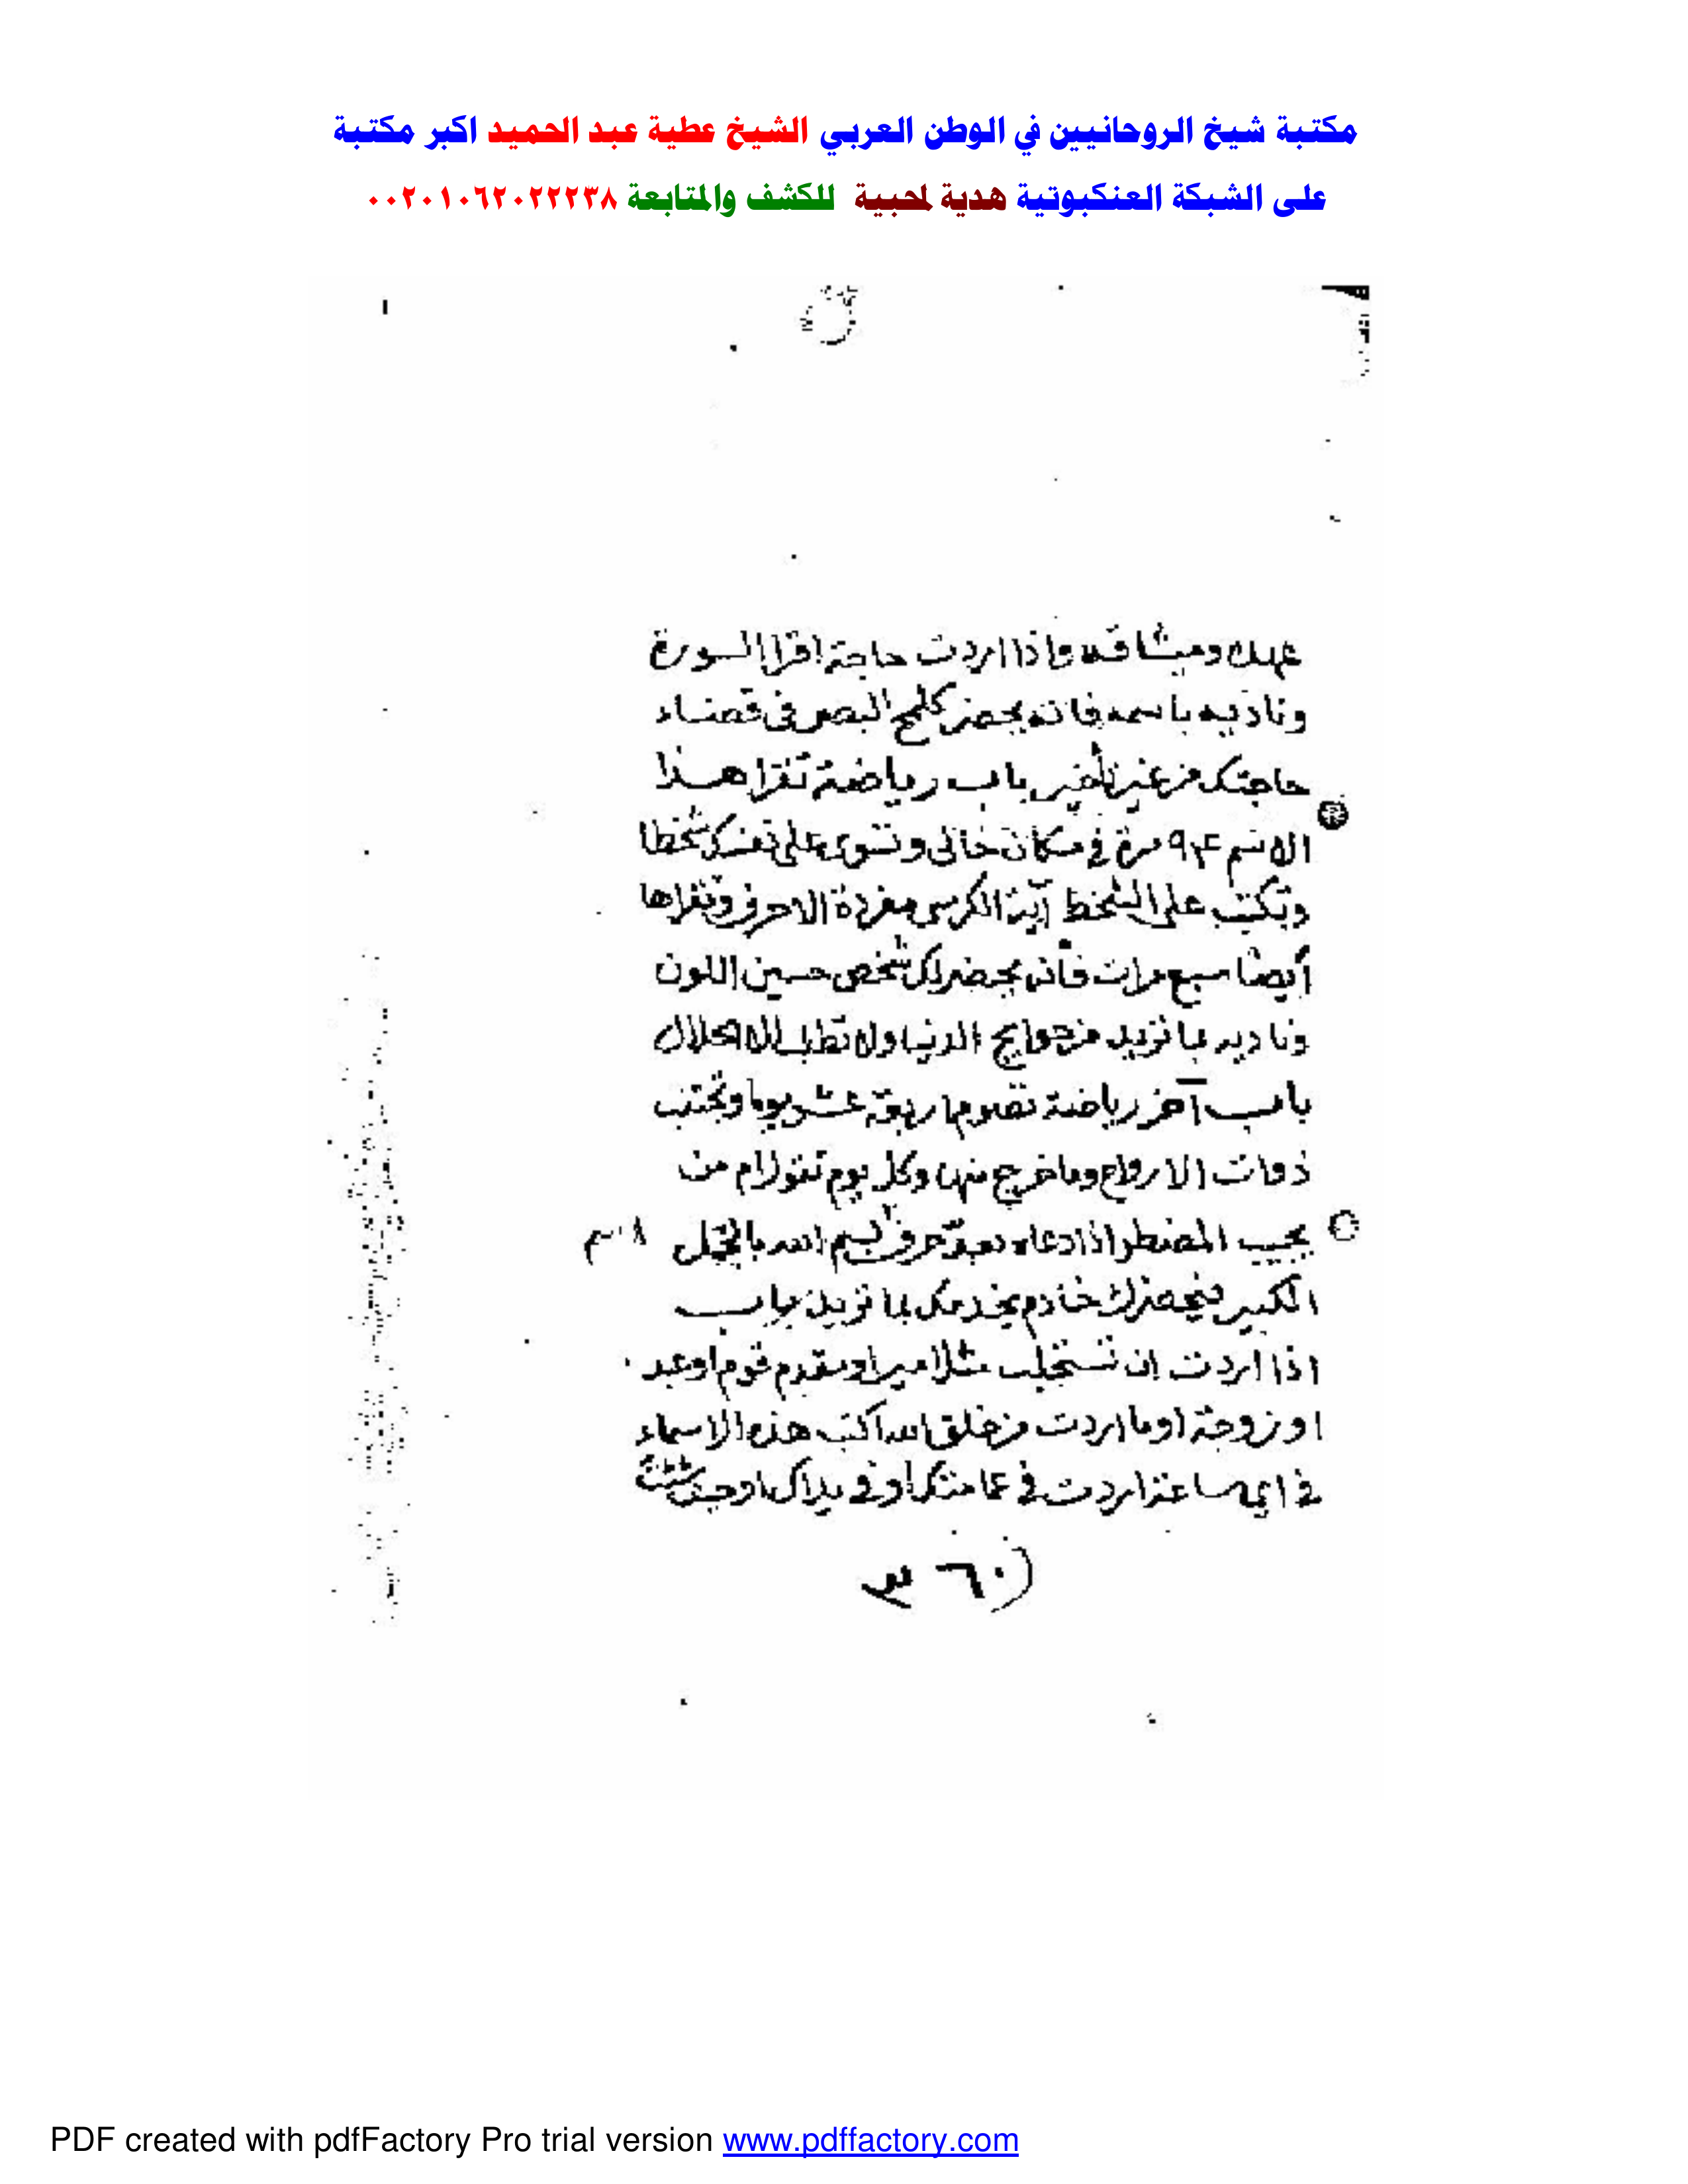 مكتبة شيخ الروحانيين في الوطن العربي الشيخ عطية عبد الحميد اكبر مكتبة
على الشبكة العنكبوتية هدية لمحبية للكشف والمتابعة ٠٠٢٠١٠٦٢٠٢٢٢٣٨
عهدك وميثاقه واذا اردت حاجة اقرا السورة
وناديه باسمه فانه يحضر كلمح البصر في قضاء
حاجتك من غير تاخير باب رياضة تقرا هذا
الاسم ٩٠٤ مرة في مكان خالى و على شخطا
وتكتب على الشخط آية الكرسى مفردة الاحرف وتقراها
أيضا سبع مرات فانه يحضر لك شخص حسين اللون
وناديه بما تريد من حوايج الدنيا ولا تطلب الا الحلال
باب آخر رياضة تصوم اربعة عشر يوما وتجتنب
ذوات الارواح وما خرج منها وكل يوم تقول ام من
يجيب المضطر اذا دعاه بعدة حرف بسم الله بالجمل
الكبير فيحضر لك خادم يخدمك بما تريد باب
اذا اردت ان تستجلب مثلا امير او مقدم قوم او عبد
او زوجة او ما اردت من خلق الله اكتب هذه الاسماء
في اي ساعة اردت في عمامتك او في يداك او حيث شئت
٦٠
PDF created with pdfFactory Pro trial version www.pdffactory.com